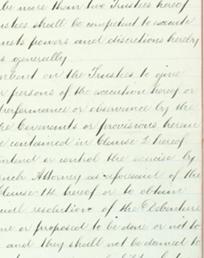 be more than two Trustees hereof
ustees shall be competent to execute
trusts powers and discretions hereby
s generally
bent on the Trustees to give
or persons of the execution hereof or
performance or observance by the
the Covenants or provisions herein
contained in Clause 2 hereof
control the exercise by
such Attorney as aforesaid of the
Clause 14 hereof or to obtain
resolution of the Debenture
or proposed to be done or not to
and they shall not be deemed to